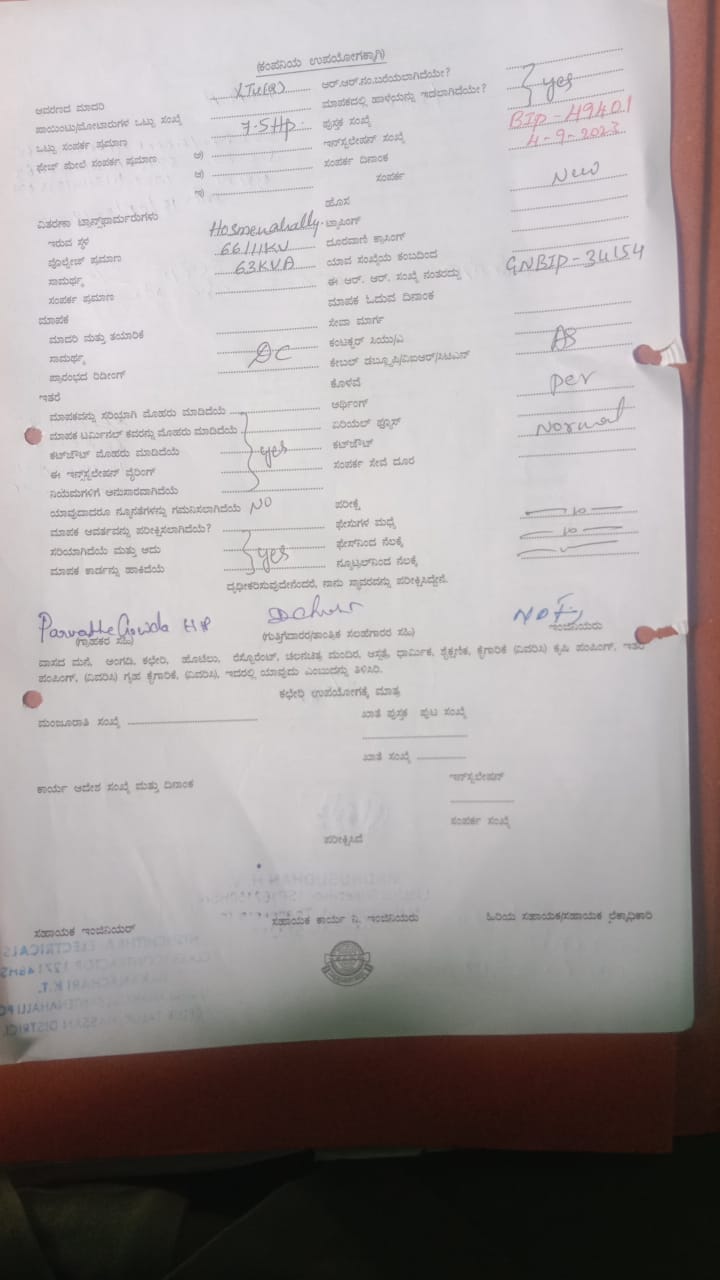 (ಕಂಪನಿಯ ಉಪಯೋಗಕ್ಕಾಗಿ)
ಆವರಣದ ಮಾದರಿ ಆರ್.ಆರ್.ನಂ.ಬರೆಯಲಾಗಿದೆಯೇ?
ಪಾಯಿಂಟು/ಮೋಟಾರುಗಳ ಒಟ್ಟು ಸಂಖ್ಯೆ ಮಾಪಕದಲ್ಲಿ ಹಾಳೆಯನ್ನು ಇಡಲಾಗಿದೆಯೇ? yes
ಒಟ್ಟು ಸಂಪರ್ಕ ಪ್ರಮಾಣ 7.5HP ಪುಸ್ತಕ ಸಂಖ್ಯೆ BIP-49401
ಫೇಜ್ ಮೇಲೆ ಸಂಪರ್ಕ ಪ್ರಮಾಣ ಅ) ಇನ್‌ಸ್ಟಲೇಷನ್ ಸಂಖ್ಯೆ 4-9-2023
ಆ) ಸಂಪರ್ಕ ದಿನಾಂಕ
ಇ) ಸಂಪರ್ಕ New
ಹೊಸ
ವಿತರಣಾ ಟ್ರಾನ್ಸ್‌ಫಾರ್ಮರುಗಳು
ಇರುವ ಸ್ಥಳ Hosmenahally ಟ್ಯಾಪಿಂಗ್
ವೋಲ್ಟೇಜ್ ಪ್ರಮಾಣ 66/11KV ದೂರವಾಣಿ ಕ್ರಾಸಿಂಗ್
ಸಾಮರ್ಥ್ಯ 63KVA ಯಾವ ಸಂಖ್ಯೆಯ ಕಂಬದಿಂದ
ಸಂಪರ್ಕ ಪ್ರಮಾಣ ಈ ಆರ್. ಆರ್. ಸಂಖ್ಯೆ ನಂತರದ್ದು GNBIP-34154
ಮಾಪಕ ಮಾಪಕ ಓದುವ ದಿನಾಂಕ
ಮಾದರಿ ಮತ್ತು ತಯಾರಿಕೆ ಸೇವಾ ಮಾರ್ಗ
ಸಾಮರ್ಥ್ಯ DC ಕಂಟಕ್ಟರ್ ಸಿಯು/ಎ AB
ಪ್ರಾರಂಭದ ರಿಡೀಂಗ್ ಕೇಬಲ್
ಇತರೆ ಕೊಳವೆ per
ಮಾಪಕವನ್ನು ಸರಿಯಾಗಿ ಮೊಹರು ಮಾಡಿದೆಯೆ ಅರ್ಥಿಂಗ್
ಮಾಪಕ ಟರ್ಮಿನಲ್ ಕವರನ್ನು ಮೊಹರು ಮಾಡಿದೆಯೆ ಏರಿಯಲ್ ಫ್ಯೂಸ್ Normal
ಕಟ್‌ಔಟ್ ಮೊಹರು ಮಾಡಿದೆಯೆ yes ಕಟ್‌ಔಟ್
ಈ ಇನ್‌ಸ್ಟಲೇಷನ್ ವೈರಿಂಗ್ ಸಂಪರ್ಕ ಸೇವೆ ದೂರ
ನಿಯಮಗಳಿಗೆ ಅನುಸಾರವಾಗಿದೆಯೆ
ಯಾವುದಾದರೂ ನ್ಯೂನತೆಗಳನ್ನು ಗಮನಿಸಲಾಗಿದೆಯೆ NO ಪರೀಕ್ಷೆ
ಮಾಪಕ ಆವರ್ತವನ್ನು ಪರೀಕ್ಷಿಸಲಾಗಿದೆಯೆ? ಫೇಸುಗಳ ಮಧ್ಯೆ
ಸರಿಯಾಗಿದೆಯೆ ಮತ್ತು ಅದು yes ಫೇಸ್‌ನಿಂದ ನೆಲಕ್ಕೆ
ಮಾಪಕ ಕಾರ್ಡನ್ನು ಹಾಕಿದೆಯೆ ನ್ಯೂಟ್ರಲ್‌ನಿಂದ ನೆಲಕ್ಕೆ
ದೃಢೀಕರಿಸುವುದೇನೆಂದರೆ, ನಾನು ಸ್ಥಾವರವನ್ನು ಪರೀಕ್ಷಿಸಿದ್ದೇನೆ.
Parvathe Gowda HP
(ಗ್ರಾಹಕರ ಸಹಿ) (ಗುತ್ತಿಗೆದಾರರ/ತಾಂತ್ರಿಕ ಸಲಹೆಗಾರರ ಸಹಿ) ಇಂಜಿನಿಯರು
ವಾಸದ ಮನೆ, ಅಂಗಡಿ, ಕಛೇರಿ, ಹೊಟೆಲು, ರೆಸ್ಟೋರೆಂಟ್, ಚಲನಚಿತ್ರ ಮಂದಿರ, ಆಸ್ಪತ್ರೆ, ಧಾರ್ಮಿಕ, ಶೈಕ್ಷಣಿಕ, ಕೈಗಾರಿಕೆ (ವಿವರಿಸಿ) ಕೃಷಿ ಪಂಪಿಂಗ್, ಇತರೆ
ಪಂಪಿಂಗ್, (ವಿವರಿಸಿ) ಗೃಹ ಕೈಗಾರಿಕೆ, (ವಿವರಿಸಿ), ಇದರಲ್ಲಿ ಯಾವುದು ಎಂಬುದನ್ನು ತಿಳಿಸಿರಿ.
ಕಛೇರಿ ಉಪಯೋಗಕ್ಕೆ ಮಾತ್ರ
ಮಂಜೂರಾತಿ ಸಂಖ್ಯೆ ಖಾತೆ ಪುಸ್ತಕ ಪುಟ ಸಂಖ್ಯೆ
ಖಾತೆ ಸಂಖ್ಯೆ
ಕಾರ್ಯ ಆದೇಶ ಸಂಖ್ಯೆ ಮತ್ತು ದಿನಾಂಕ ಇನ್‌ಸ್ಟಲೇಷನ್
ಸಂಪರ್ಕ ಸಂಖ್ಯೆ
ಪರೀಕ್ಷಿಸಿದೆ
ಸಹಾಯಕ ಇಂಜಿನಿಯರ್ ಸಹಾಯಕ ಕಾರ್ಯ ನಿ. ಇಂಜಿನಿಯರು ಹಿರಿಯ ಸಹಾಯಕ/ಸಹಾಯಕ ಲೆಕ್ಕಾಧಿಕಾರಿ